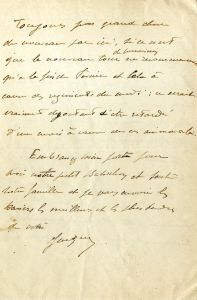 Toujours pas grand chose
de nouveau par ici, si ce n'est
que le nouveau tour de permissions
qui a le
cause des régiments du midi; ce serait
vraiment dégoûtant d'être retardé
d'un mois à cause de ces animaux là.
Embrasse bien fort pour
moi notre petit et toute
notre famille et je vous envoie les
baisers les meilleurs et les plus tendres
de votre